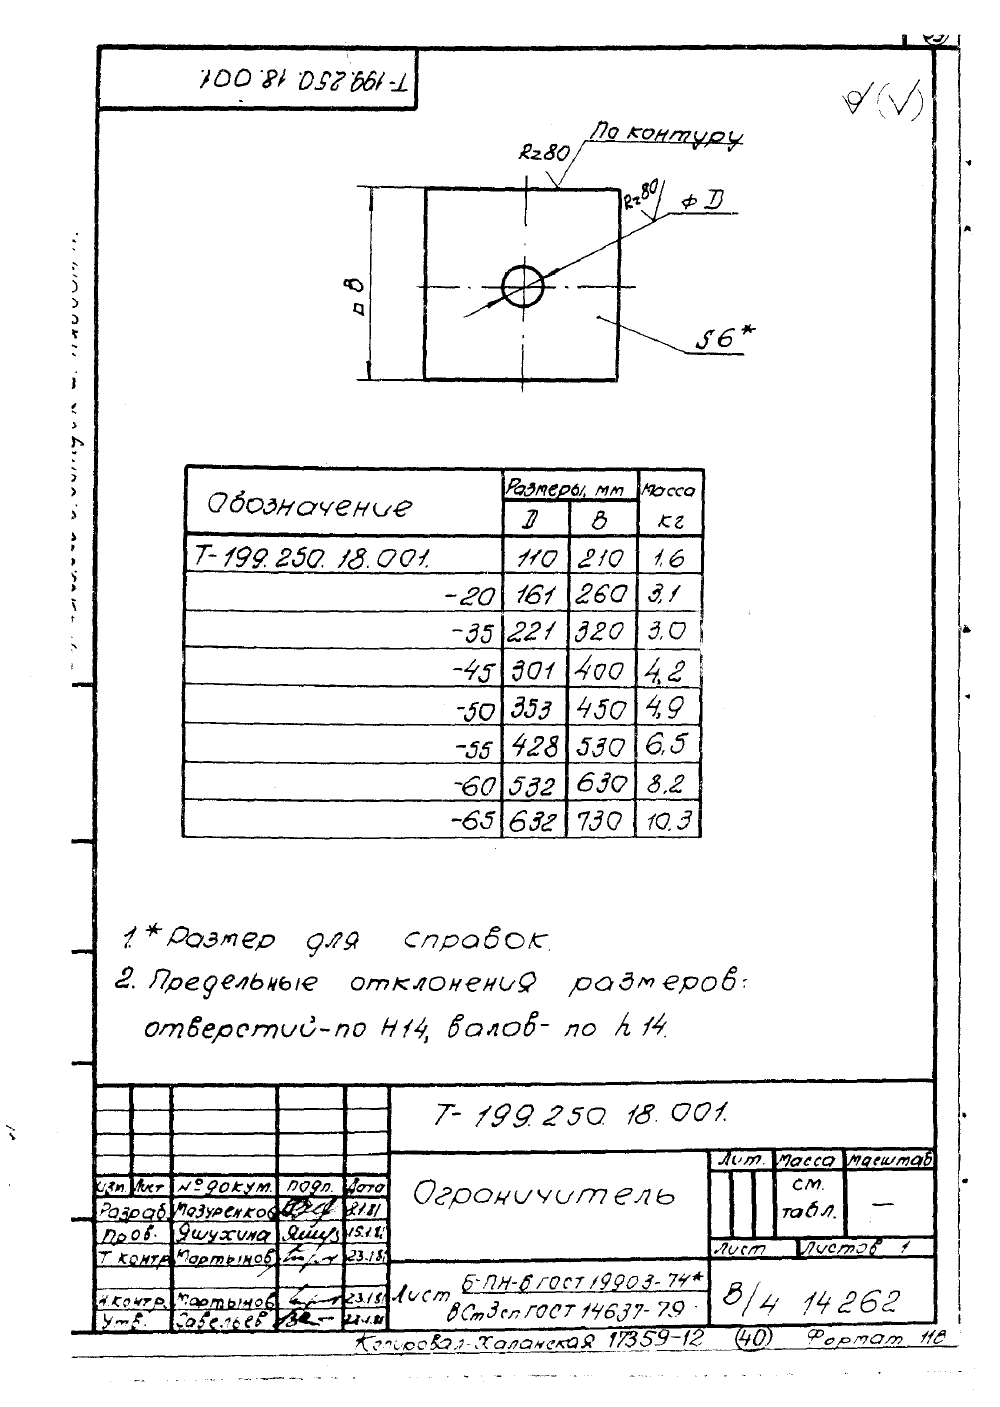 Т-199.250.18.001.
По контуру
Rz80
Rz80
⌀ D
□ В
S6*
Обозначение Размеры, мм Масса кг
D В
Т-199.250.18.001. 110 210 1,6
-20 161 260 3,1
-35 221 320 3,0
-45 301 400 4,2
-50 353 450 4,9
-55 428 530 6,5
-60 532 630 8,2
-65 632 730 10,3
1.* Размер для справок.
2. Предельные отклонения размеров:
отверстий-по H14, валов- по h 14.
Т- 199.250.18.001.
Изм. Лист № докум. подп. Дата
Разраб. Мазуренкова
Пров. Яшухина 15.1.81
Т контр Мартынов 23.1.81
Н.контр. Мартынов 23.1.81
Утв. Савельев
Ограничитель
Лит. Масса Масштаб
см. табл. —
Лист Листов 1
Лист Б-ПН-6 ГОСТ 19903-74*
ВСт3сп ГОСТ 14637-79
В/4 14262
Копировал-Халанская 17359-12 (40) Формат 11В